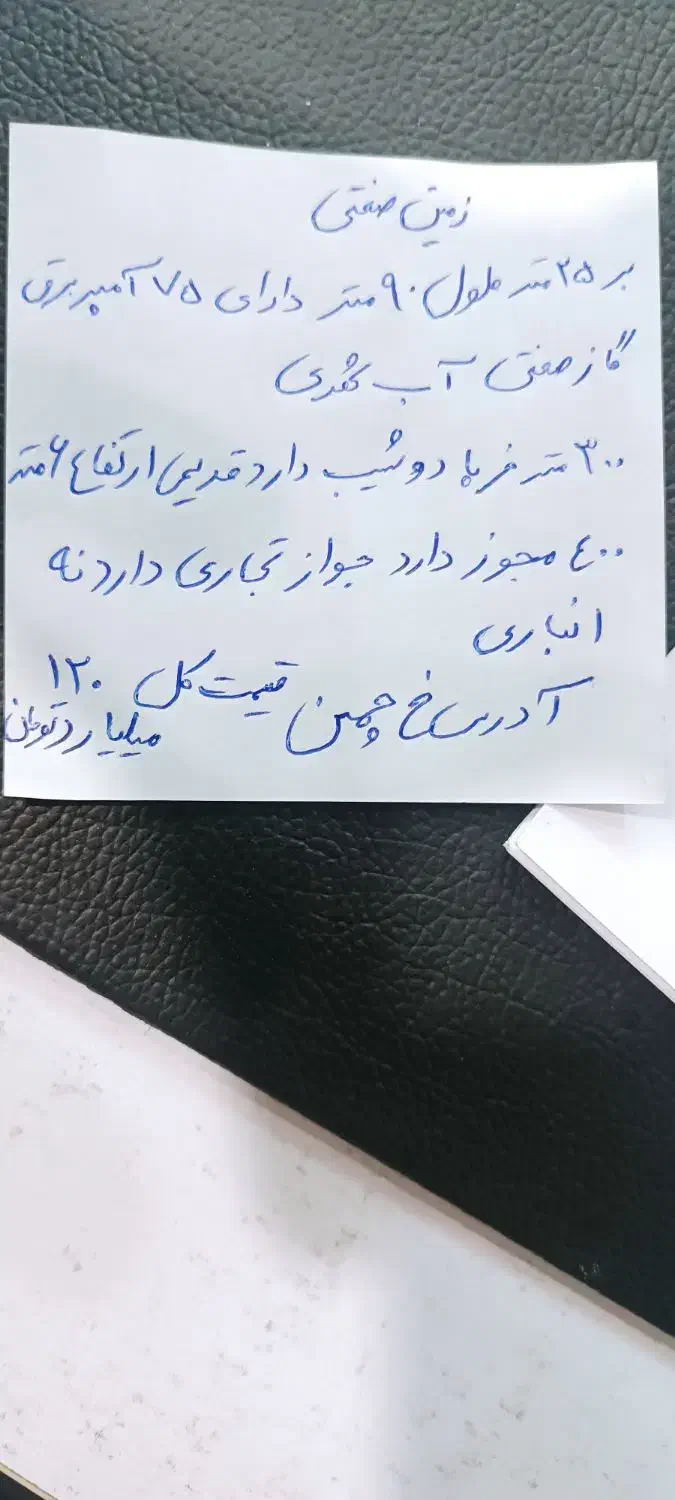 زمین صنعتی
بر ۲۵ متر طول ۹۰ متر دارای ۷۵ آمپر برق
گاز صنعتی آب شهری
۳۰۰ متر خرپا دو شیب دارد قدیمی ارتفاع ۶ متر
۴۰۰ مجوز دارد جواز تجاری دارد نه
انباری
آدرس خ چمن قیمت کل ۱۲۰
میلیارد تومان